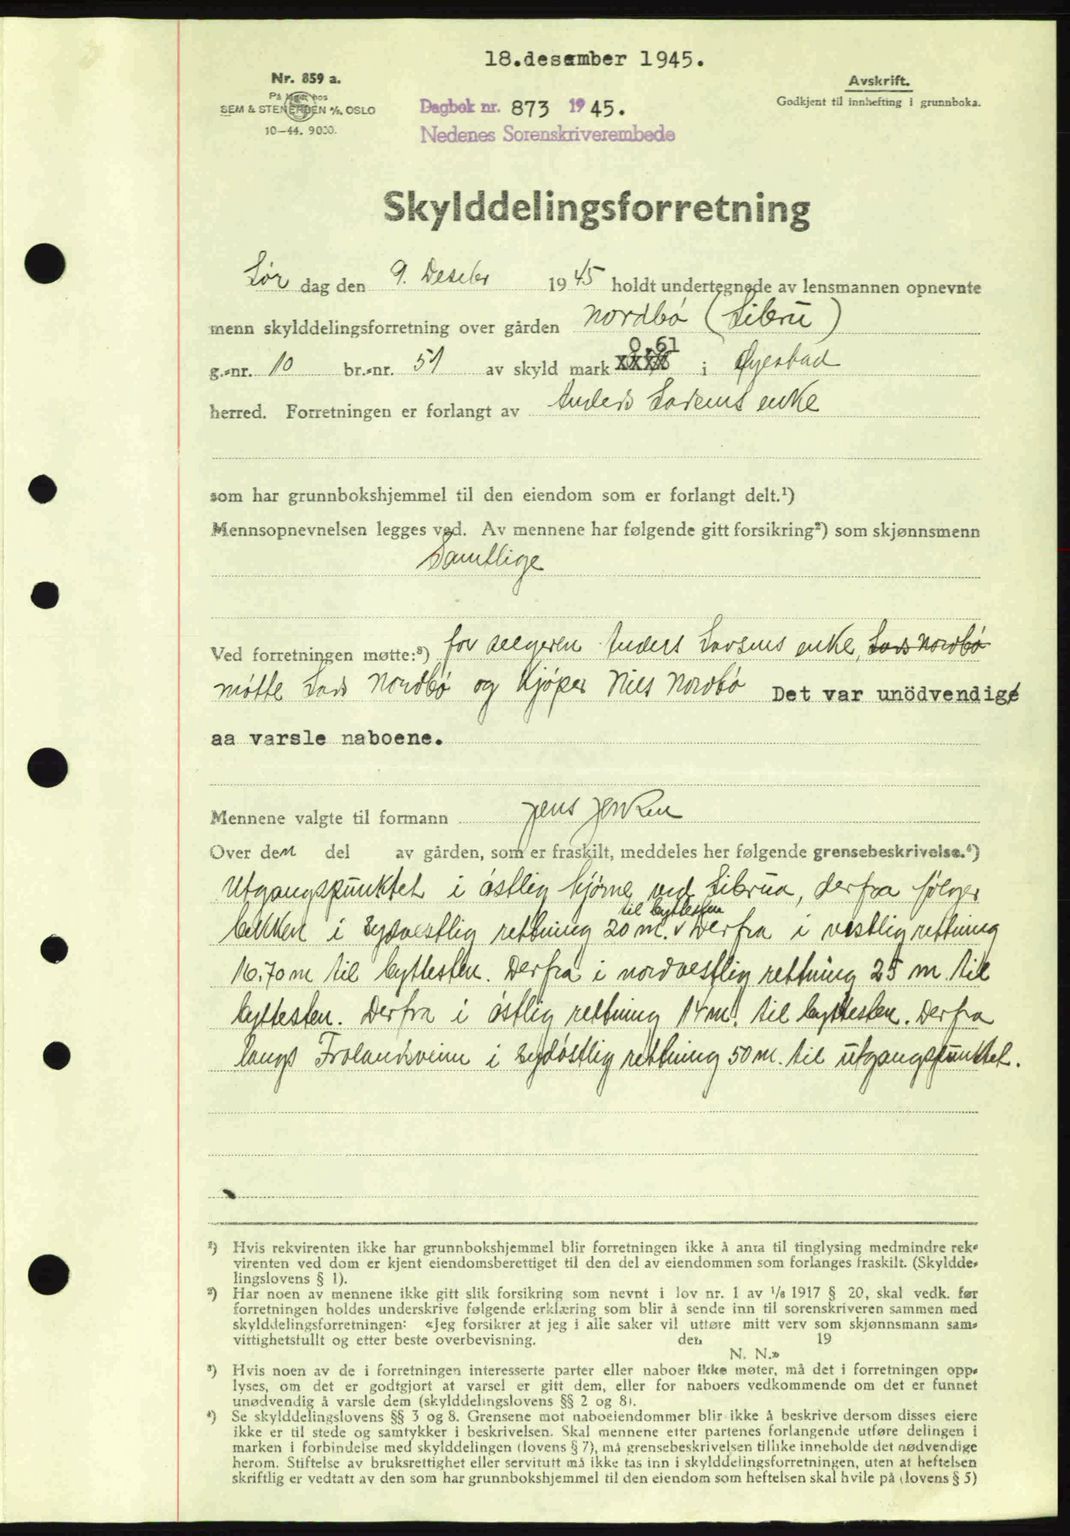 18.desember 1945.
Nr. 859 a.
På lager hos
SEM & STENERSEN A/S, OSLO
10—44. 9000.
Avskrift.
Godkjent til innhefting i grunnboka.
Dagbok nr. 873 1945.
Nedenes Sorenskriverembede
Skylddelingsforretning
Lør dag den 9. Desebr 1945 holdt undertegnede av lensmannen opnevnte
menn skylddelingsforretning over gården Nordbö (Libru)
0,61
g.-nr. 10 br.-nr. 51 av skyld mark xxxx i Øyestad
herred. Forretningen er forlangt av Anders Larsens enke
som har grunnbokshjemmel til den eiendom som er forlangt delt.¹)
Mennsopnevnelsen legges ved. Av mennene har følgende gitt forsikring²) som skjønnsmenn
Samtlige
Ved forretningen møtte:³) for selgeren Anders Larsens enke, Lars Nordbö
mötte Lars Nordbö og kjöper Nils Nordbö Det var unödvendig
aa varsle naboene.
Mennene valgte til formann Jens Jensen
Over den del av gården, som er fraskilt, meddeles her følgende grensebeskrivelse.⁴)
Utgangspunktet i östlig hjörne ved Librua, derfra fölger
til byttesten
bekken i sydvestlig rettning 20 m. v Derfra i vestlig rettning
16.70 m til byttesten. Derfra i nordvestlig rettning 25 m. til
byttesten. Derfra i östlig rettning 14 m. til byttesten. Derfra
langs Frolandsveien i sydöstlig rettning 50 m. til utgangspunktet.
¹) Hvis rekvirenten ikke har grunnbokshjemmel blir forretningen ikke å anta til tinglysing medmindre rek-
virenten ved dom er kjent eiendomsberettiget til den del av eiendommen som forlanges fraskilt. (Skyldde-
lingslovens § 1).
²) Har noen av mennene ikke gitt slik forsikring som nevnt i lov nr. 1 av 1/6 1917 § 20, skal vedk. før
forretningen holdes underskrive følgende erklæring som blir å sende inn til sorenskriveren sammen med
skylddelingsforretningen: «Jeg forsikrer at jeg i alle saker vil utføre mitt verv som skjønnsmann sam-
vittighetsfullt og etter beste overbevisning. den 19
N. N.»
³) Hvis noen av de i forretningen interesserte parter eller naboer ikke møter, må det i forretningen opp-
lyses, om det er godtgjort at varsel er gitt dem, eller for naboers vedkommende om det er funnet
unødvendig å varsle dem (skylddelingslovens §§ 2 og 8).
⁴) Se skylddelingslovens §§ 3 og 8. Grensene mot naboeiendommer blir ikke å beskrive dersom disses eiere
ikke er til stede og samtykker i beskrivelsen. Skal mennene etter partenes forlangende utføre delingen i
marken i forbindelse med skylddelingen (lovens § 7), må grensebeskrivelsen tillike inneholde det nødvendige
herom. Stiftelse av bruksrettighet eller servitutt må ikke tas inn i skylddelingsforretningen, uten at heftelsen
skriftlig er vedtatt av den som har grunnbokshjemmel til den eiendom som heftelsen skal hvile på (lovens § 5)